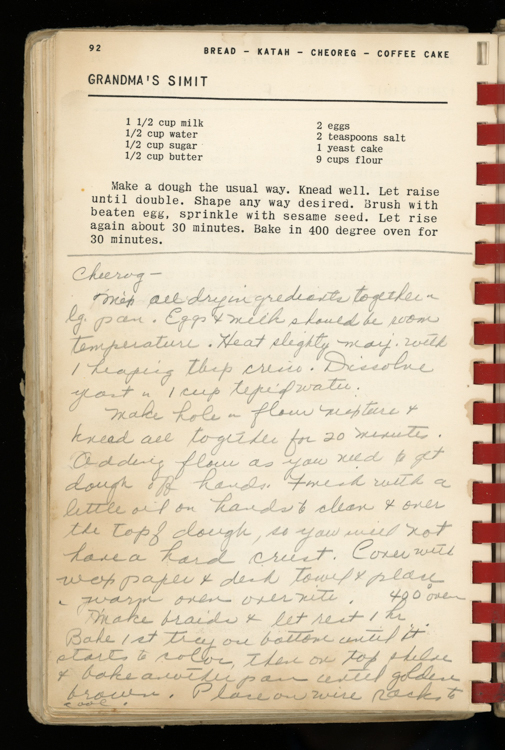 92
BREAD - KATAH - CHEOREG - COFFEE CAKE
GRANDMA'S SIMIT
1 1/2 cup milk
1/2 cup water
1/2 cup sugar
1/2 cup butter
2 eggs
2 teaspoons salt
1 yeast cake
9 cups flour
Make a dough the usual way. Knead well. Let raise
until double. Shape any way desired. Brush with
beaten egg, sprinkle with sesame seed. Let rise
again about 30 minutes. Bake in 400 degree oven for
30 minutes.
Cheerog -
Mix all dry ingredients together in
lg. pan. Eggs & milk should be room
temperature. Heat slighty with
1 heaping tbsp Dissolve
yeast in 1 cup tepid water.
Make hole in flour mixture &
knead all together for 20 minutes.
Adding flour as you need to get
dough off hands. Finish with a
little oil on hands to clean & over
the top of dough, so you will not
have a hard crust. Cover with
wax paper & dish towel & place
in warm oven over nite. 400° oven
Make braids & let rest 1 hr.
Bake 1st tray on bottom until it
starts to color, then on top shelve
& bake another pan until golden
brown. Place on wire racks to
cool.